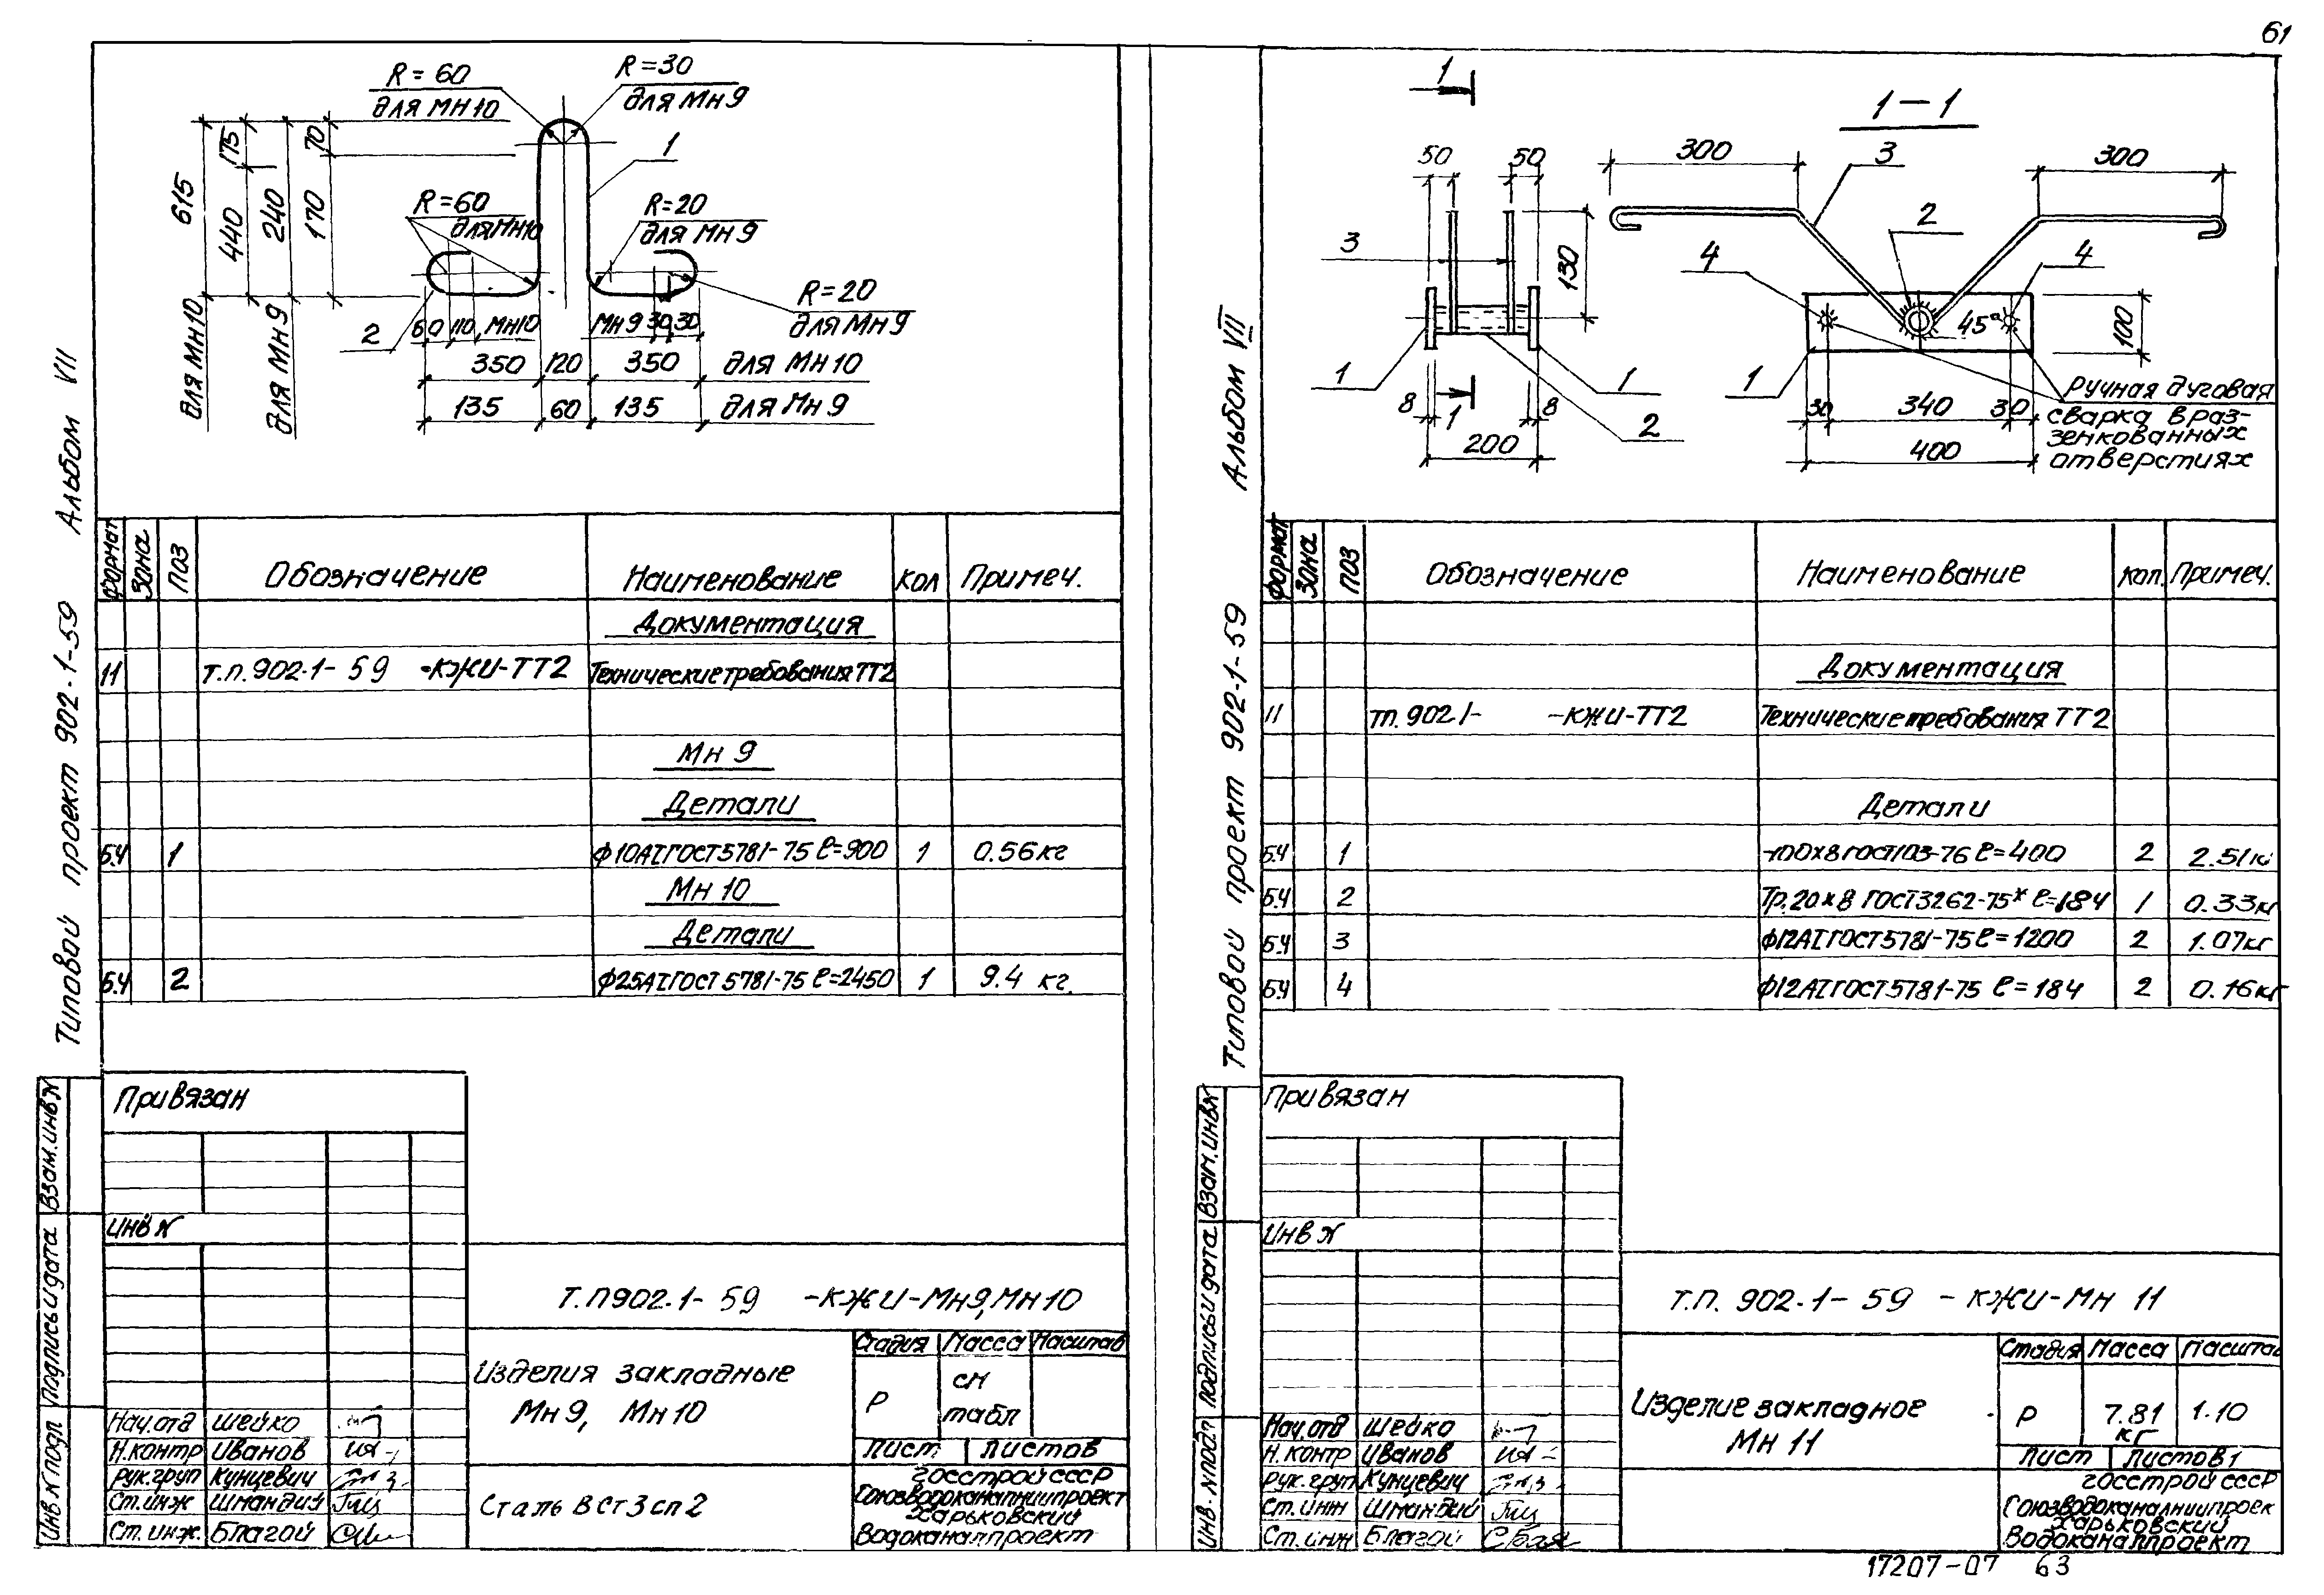 61
Альбом VII
Типовой проект 902-1-59
R=60
для Мн10
R=30
для Мн9
1
615
175
440
240
70
170
R=60
для Мн10
R=20
для Мн9
R=20
для Мн9
2
60 110 Мн10
Мн9 30 30
350 120 350 для Мн10
135 60 135 для Мн9
для Мн10
для Мн9
Формат Зона Поз Обозначение Наименование Кол Примеч.
Документация
11 Т.п.902-1-59 -КЖИ-ТТ2 Технические требования ТТ2
Мн 9
Детали
Б.Ч 1 ф10АI ГОСТ 5781-75 ℓ=900 1 0.56 кг
Мн 10
Детали
Б.Ч 2 ф25АI ГОСТ 5781-75 ℓ=2450 1 9.4 кг.
Привязан
Инв №
Взам. инв №
Подпись и дата
Инв № подл
Т.П902.1-59 -КЖИ-Мн9, Мн10
Изделия закладные
Мн 9, Мн 10
Стадия Масса Масштаб
Р см табл
Лист Листов
Сталь В Ст 3 сп 2
Госстрой СССР
Союзводоканалниипроект
Харьковский
Водоканалпроект
Нач.отд Шейко
Н.контр Иванов
Рук.груп Кунцевич
Ст.инж Шмандий
Ст.инж. Благой
Альбом VII
Типовой проект 902-1-59
1
1-1
50 50
3
130
1
1
2
8 1 8
200
300
3
300
2
4
4
45°
100
1
30 340 30
400
Ручная дуговая
сварка в раз-
зенкованных
отверстиях
Формат Зона Поз Обозначение Наименование Кол. Примеч.
Документация
11 тп. 902.1- -КЖИ-ТТ2 Технические требования ТТ2
Детали
Б.Ч 1 -100х8 ГОСТ103-76 ℓ=400 2 2.51 кг
Б.Ч 2 Тр.20х8 ГОСТ3262-75* ℓ=184 1 0.33 кг
Б.Ч 3 ф12АI ГОСТ 5781-75 ℓ=1200 2 1.07 кг
Б.Ч 4 ф12АI ГОСТ 5781-75 ℓ=184 2 0.16 кг
Привязан
Инв №
Взам. инв №
Подпись и дата
Инв. № подл
Т.П. 902.1-59 -КЖИ-Мн 11
Изделие закладное
Мн 11
Стадия Масса Масштаб
Р 7.81 кг 1:10
Лист Листов 1
Госстрой СССР
Союзводоканалниипроек
Харьковский
Водоканалпроект
Нач.отд Шейко
Н.контр Иванов
Рук.груп Кунцевич
Ст.инж Шмандий
Ст.инж Благой
17207-07 63